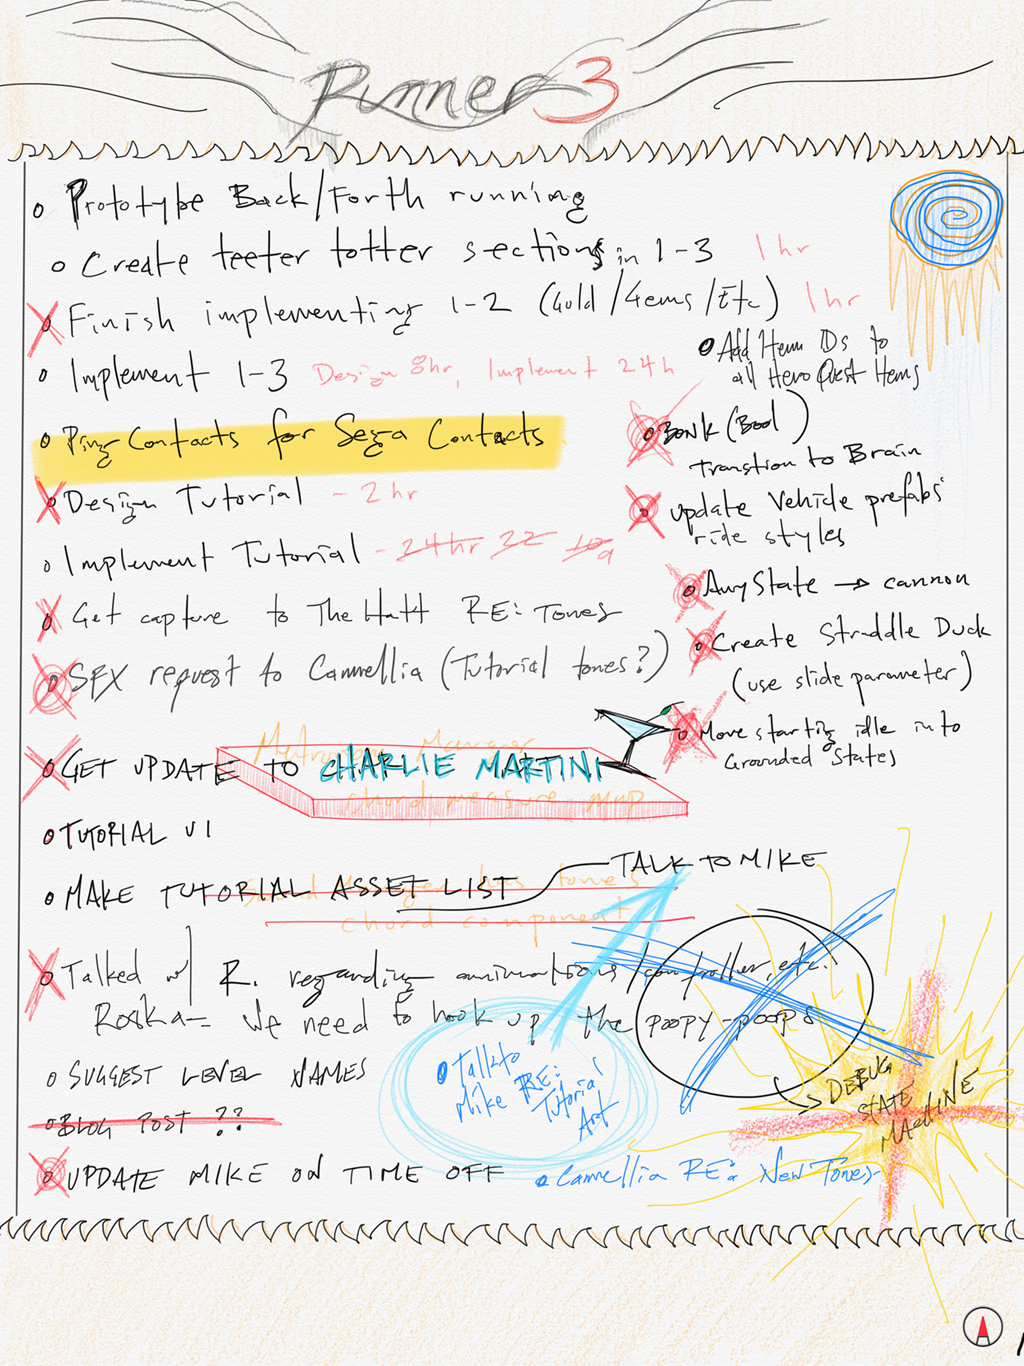 Runner 3
o Prototype Back/Forth running
o Create teeter totter sections in 1-3 1 hr
o Finish implementing 1-2 (Gold/Gems/Etc) 1 hr
o Implement 1-3 Design 8hr, Implement 24h
o Ping Contacts for Sega Contacts
o Design Tutorial - 2 hr
o Implement Tutorial - 24hr 22
o Get capture to The Hatt RE: Tones
o SFX request to Cammellia (Tutorial tones?)
o GET UPDATE TO CHARLIE MARTINI
Metronome Manager
chord measure map
o TUTORIAL UI
o MAKE TUTORIAL ASSET LIST
TALK TO MIKE
tones
chord component
o Talked w/ R. regarding animations/controller, etc.
We need to hook up the poopy-poops
o SUGGEST LEVEL NAMES
o BLOG POST ??
o UPDATE MIKE ON TIME OFF
o Add Item IDs to
all Hero Quest Items
o BONK (Bool)
Transtion to Brain
o update Vehicle prefabs'
ride styles
o AnyState → cannon
o Create Straddle Duck
(use slide parameter)
o Move starting idle into
Grounded States
o Talk to
Mike RE:
Tutorial
Art
→ DEBUG
STATE
MACHINE
o Cammellia RE: New Tones